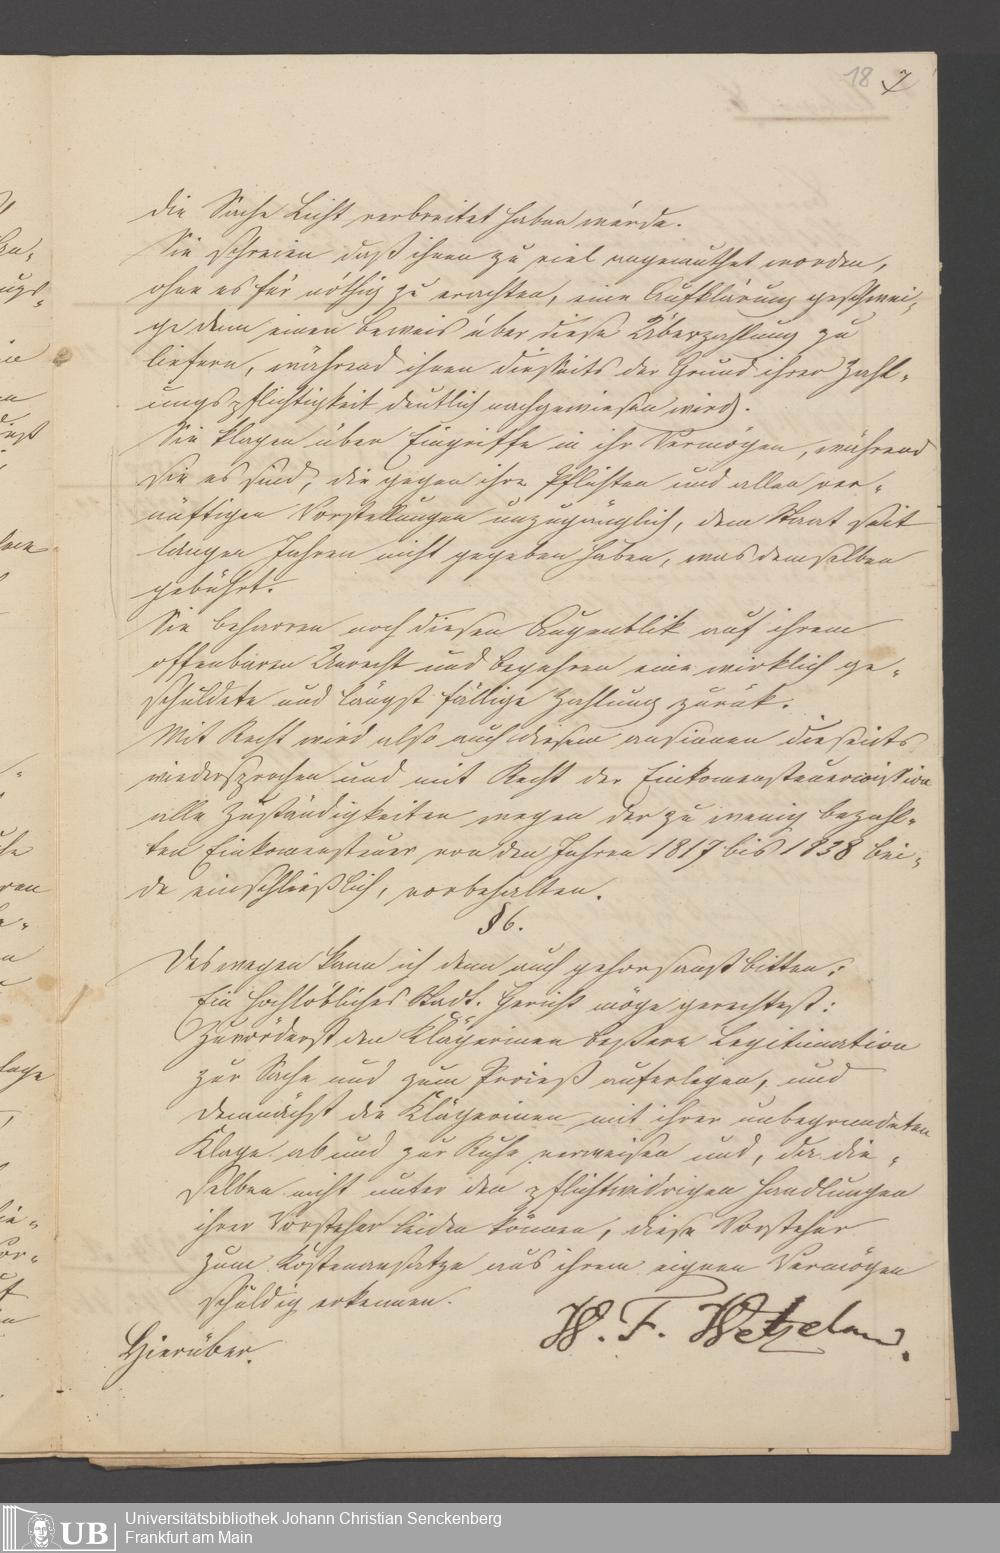 18 7
die Sache Licht verbreitet haben würde.
Sie schreien daß ihnen zu viel angemuthet worden,
ohne es für nöthig zu erachten, eine Aufklärung geschwei-
ge denn einen Beweis über diese Überzahlung zu
liefern, während ihnen diesseits der Grund ihrer Zahl-
ungspflichtigkeit deutlich nachgewiesen wird.
Sie klagen über Eingriffe in ihr Vermögen, während
sie es sind, die gegen ihre Pflichten und allen ver-
nünftigen Vorstellungen unzugänglich, dem Staat seit
langen Jahren nicht gegeben haben, was demselben
gebührt.
Sie beharren noch diesen Augenblik auf ihrem
offenbaren Unrecht und begehren eine wirklich ge-
schuldete und längst fällige Zahlung zurük.
Mit Recht wird also auch diesem ansinnen dieseits
widersprochen und mit Recht der Einkomensteuercomission
alle Zuständigkeiten wegen der zu wenig bezahl-
ten Einkomensteuer von den Jahren 1817 bis 1838 bei-
de einschließlich, vorbehalten.
§ 6.
Deswegen kann ich denn auch gehorsamst bitten:
Ein hochlöbliches Stadt. Gericht möge gerechtest:
Zuvörderst den Klägerinen beßere Legitimation
zur Sache und zum Proceß auferlegen, und
demnächst die Klägerinen mit ihrer unbegründeten
Klage ab und zur Ruhe verweisen und, da die-
selben nicht unter den pflichtwidrigen Handlungen
ihrer Vorsteher leiden können, diese Vorsteher
zum Kostenersatze aus ihrem eignen Vermögen
schuldig erkennen.
Hierüber.
W. F.
Universitätsbibliothek Johann Christian Senckenberg
Frankfurt am Main
UB